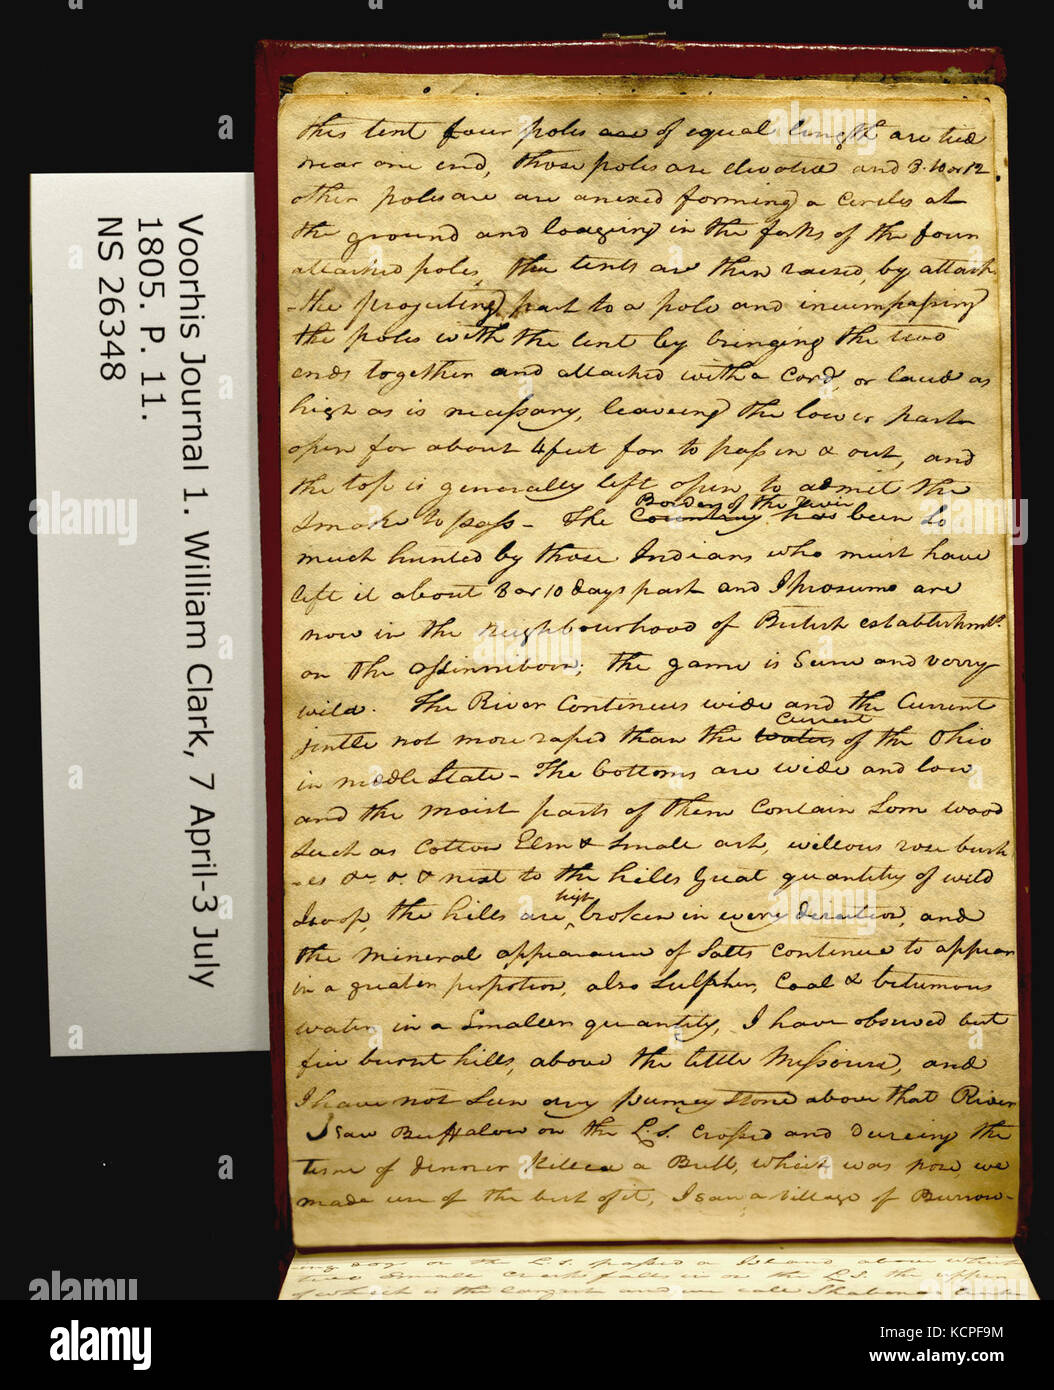 this tent four poles are of equal length are tied
near one end, those poles are elevated and 8. 10 or 12
other poles are are anexed forming a Circles at
the ground and lodgeing in the forks of the four
attached poles, the tents are then raised, by attach-
-the projecting part to a pole and incumpassing
the poles with the tent by bringing the two
ends together and attached with a Cord, or laced as
high as is necessary, leaveing the lower part
open for about 4 feet for to pass in & out, and
the top is generally left open to admit the
Border of the river
Smoke to pass - The Countrey has been So
much hunted by those Indians who must have
left it about 8 or 10 days past and I prosume are
now in the neighbourhood of British establishmts.
on the Assinniboin; the game is Scerce and verry
wild. The River Continues wide and the Current
Current
jentle not more rapid than the waters of the Ohio
in middle State - The bottoms are wide and low
and the moist parts of them Contain Som wood
Such as Cotton Elm & Small ash, willows rose bush
-es &c. &. & next to the hills Great quantity of wild
high
Isoop, the hills are broken in every direction, and
the mineral appearance of Salts Continue to appear
in a greater perpotion, also Sulpher, Coal & bitumous
water in a Smaller quantity, I have observed but
fiew burnt hills, above the little Missouri, and
I have not Seen any pumey stone above that River
I saw Buffalow on the L. S. Crossed and dureing the
time of dinner killed a Bull, which was pore, we
made use of the best of it, I Saw a village of Burrow-
ing dogs on the L. S. passed a Island above which
two Small Creeks falls in on the L S. the upper
of which is the largest and we call
Voorhis Journal 1. William Clark, 7 April-3 July
1805. P. 11.
NS 26348
alamy
Image ID: KCPF9M
www.alamy.com